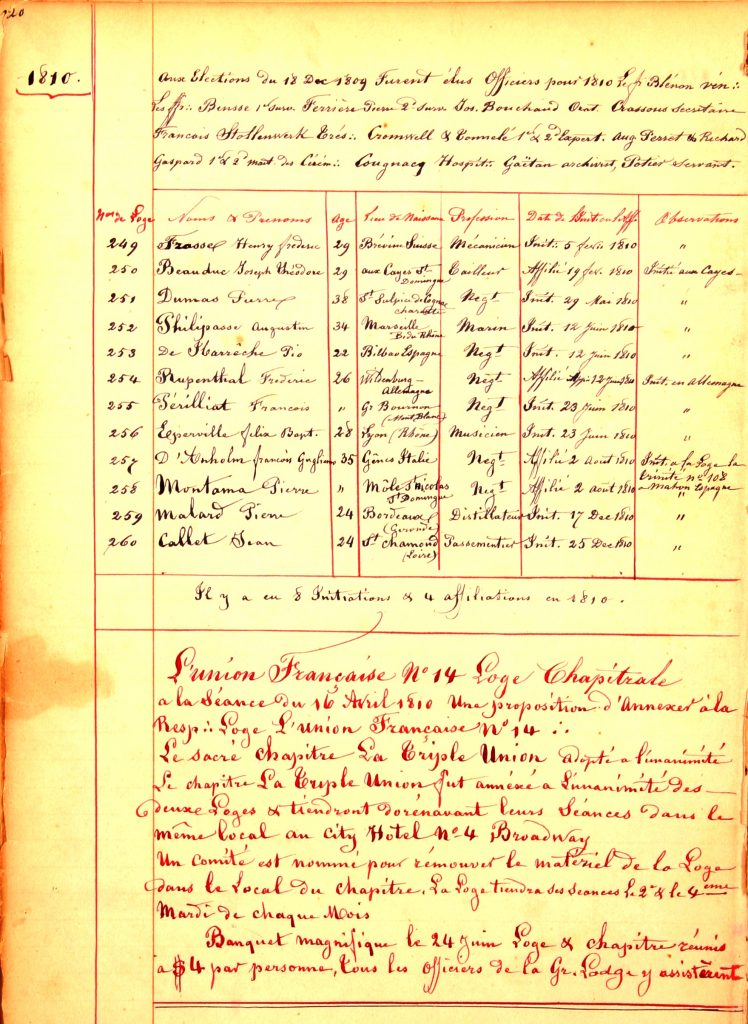 220
1810.
Aux Elections du 18 Dec 1809 Furent élus Officiers pour 1810 Le f∴ Blénon vén∴
Les ff∴ Bensse 1er Surv. Ferrière Pierre 2d Surv. Jos. Bouchaud Orat. Crassous Secretaire
Francois Stollenwerk Trés∴ Cromwell & Connelé 1r & 2d Expert. Aug Perret & Richard
Gaspard 1r & 2d mait. des Cérém∴ Cougnacq Hospit∴ Gaëtan archivist, Potier Servant.
Nos de Loge Noms & Prenoms Age Lieu de Naissance Profession Date de Observations
249 Henry frederic 29 Suisse Mécanicien Init. 5 fevr. 1810 "
250 Beauduc Joseph Théodore 29 aux Cayes St Domingue Tailleur Affilié 19 fev. 1810 Initié aux Cayes
251 Dumas Pierre 38 St Sulpice de Cognac Charente Negt Init. 29 Mai 1810 "
252 Philipasse Augustin 34 Marseille B. du Rhône Marin Init. 12 Juin 1810 "
253 De Pio 22 Bilbao Espagne Negt Init. 12 Juin 1810 "
254 Rupenthal Frederic 26 Allemagne Negt Affilié 12 Juin 1810 Init. en Allemagne
255 Férilliat Francois " Gr Bournon (Mont Blanc) Negt Init. 23 Juin 1810 "
256 Eperville felix Bapt. 28 Lyon (Rhône) Musicien Init. 23 Juin 1810 "
257 D'Anholm francois 35 Gênes Italie Negt Affilié 2 Aout 1810 Init. a la Loge la
258 Montama Pierre " Môle St Nicolas St Domingue Negt Affilié 2 aout 1810 trinité no 108 a Mahon Espagne
259 Malard Pierre 24 Bordeaux (Gironde) Distillateur Init. 17 Dec 1810 "
260 Callet Jean 24 St Chamond (Loire) Passementier Init. 25 Dec 1810 "
Il y a eu 8 Initiations & 4 affiliations en 1810.
L'union Française No 14 Loge Chapitrale
a la Séance du 16 Avril 1810 Une proposition d'Annexer à la
Resp∴ Loge L'Union Française No 14 ∴
Le sacré chapitre La Triple Union adopté a l'unanimité
Le chapitre La Triple Union fut annéxé a L'unanimité des
deux Loges & tiendront dorénavant leurs Séances dans le
même local au City Hotel No 4 Broadway
Un Comité est nommé pour rémouver le matériel de la Loge
dans le Local du chapitre. La Loge tiendra ses seances le 2e & le 4eme
Mardi de chaque Mois
Banquet magnifique le 24 Juin Loge & chapitre réunis
a $4 par personne, tous les Officiers de la Gr. Lodge y assistèrent